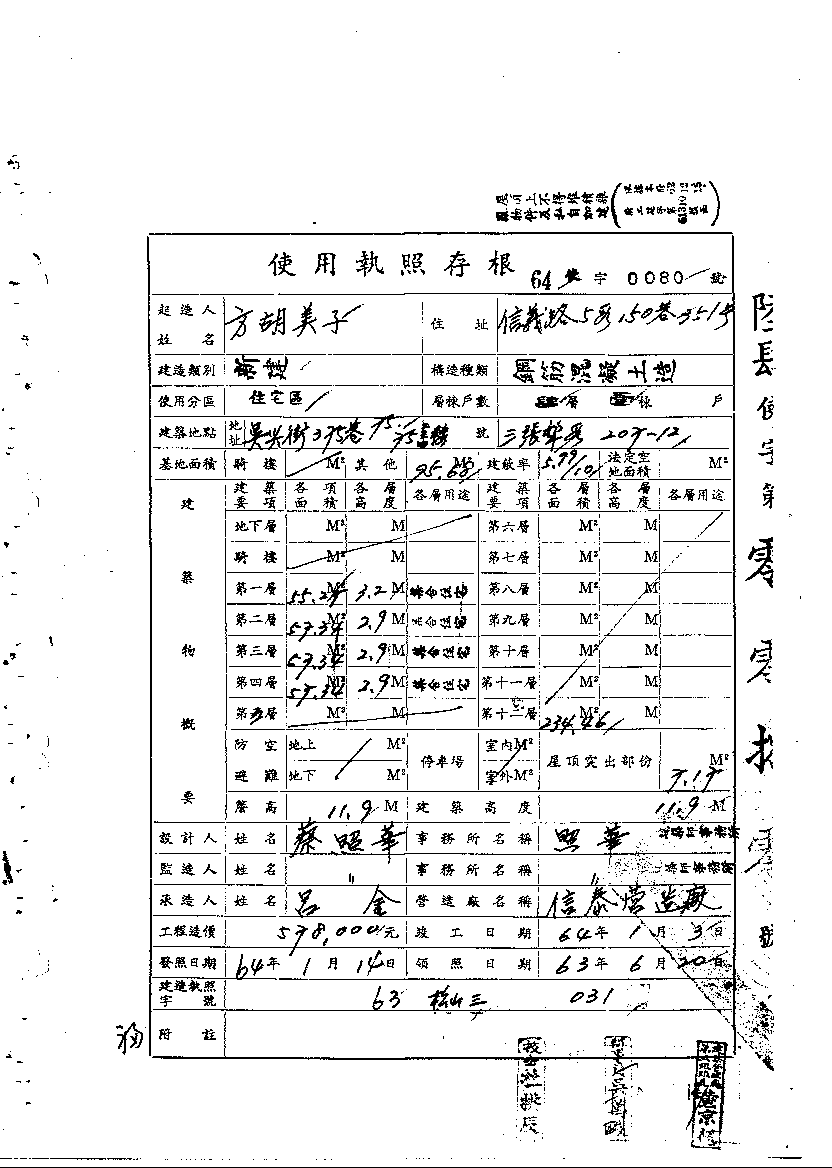 使用執照存根 64 使字 0080 號
起造人姓名 方胡美子 住址 信義路5段150巷351号
建造類別 新建 構造種類 鋼筋混凝土造
使用分區 住宅區 層棟戶數 層 棟 戶
建築地點 地址 吳興街375巷 號 三張犂段 207-12
基地面積 騎樓 M² 其他 95.68 M² 建蔽率 5.99/10 法定空地面積 M²
建築物概要 建築要項 各項面積 各層高度 各層用途 建築要項 各項面積 各層高度 各層用途
地下層 M² M 第六層 M² M
騎樓 M² M 第七層 M² M
第一層 M² 3.2 M 集合住宅 第八層 M² M
第二層 57.34 M² 2.9 M 集合住宅 第九層 M² M
第三層 57.34 M² 2.9 M 集合住宅 第十層 M² M
第四層 57.34 M² 2.9 M 集合住宅 第十一層 M² M
第五層 M² M 第十二層 234.46
防空避難 地上 M² 停車場 室內 M² 屋頂突出部份 7.17 M²
地下 M² 室外 M²
簷高 11.9 M 建築高度 11.9 M
設計人 姓名 蔡照華 事務所名稱 照華
監造人 姓名 〃 事務所名稱 〃
承造人 姓名 呂金 營造廠名稱 信泰營造廠
工程造價 578,000元 竣工日期 64年1月3日
發照日期 64年1月14日 領照日期 63年6月20日
建造執照字號 63 松山三 031
附註
使字第零零捌零號